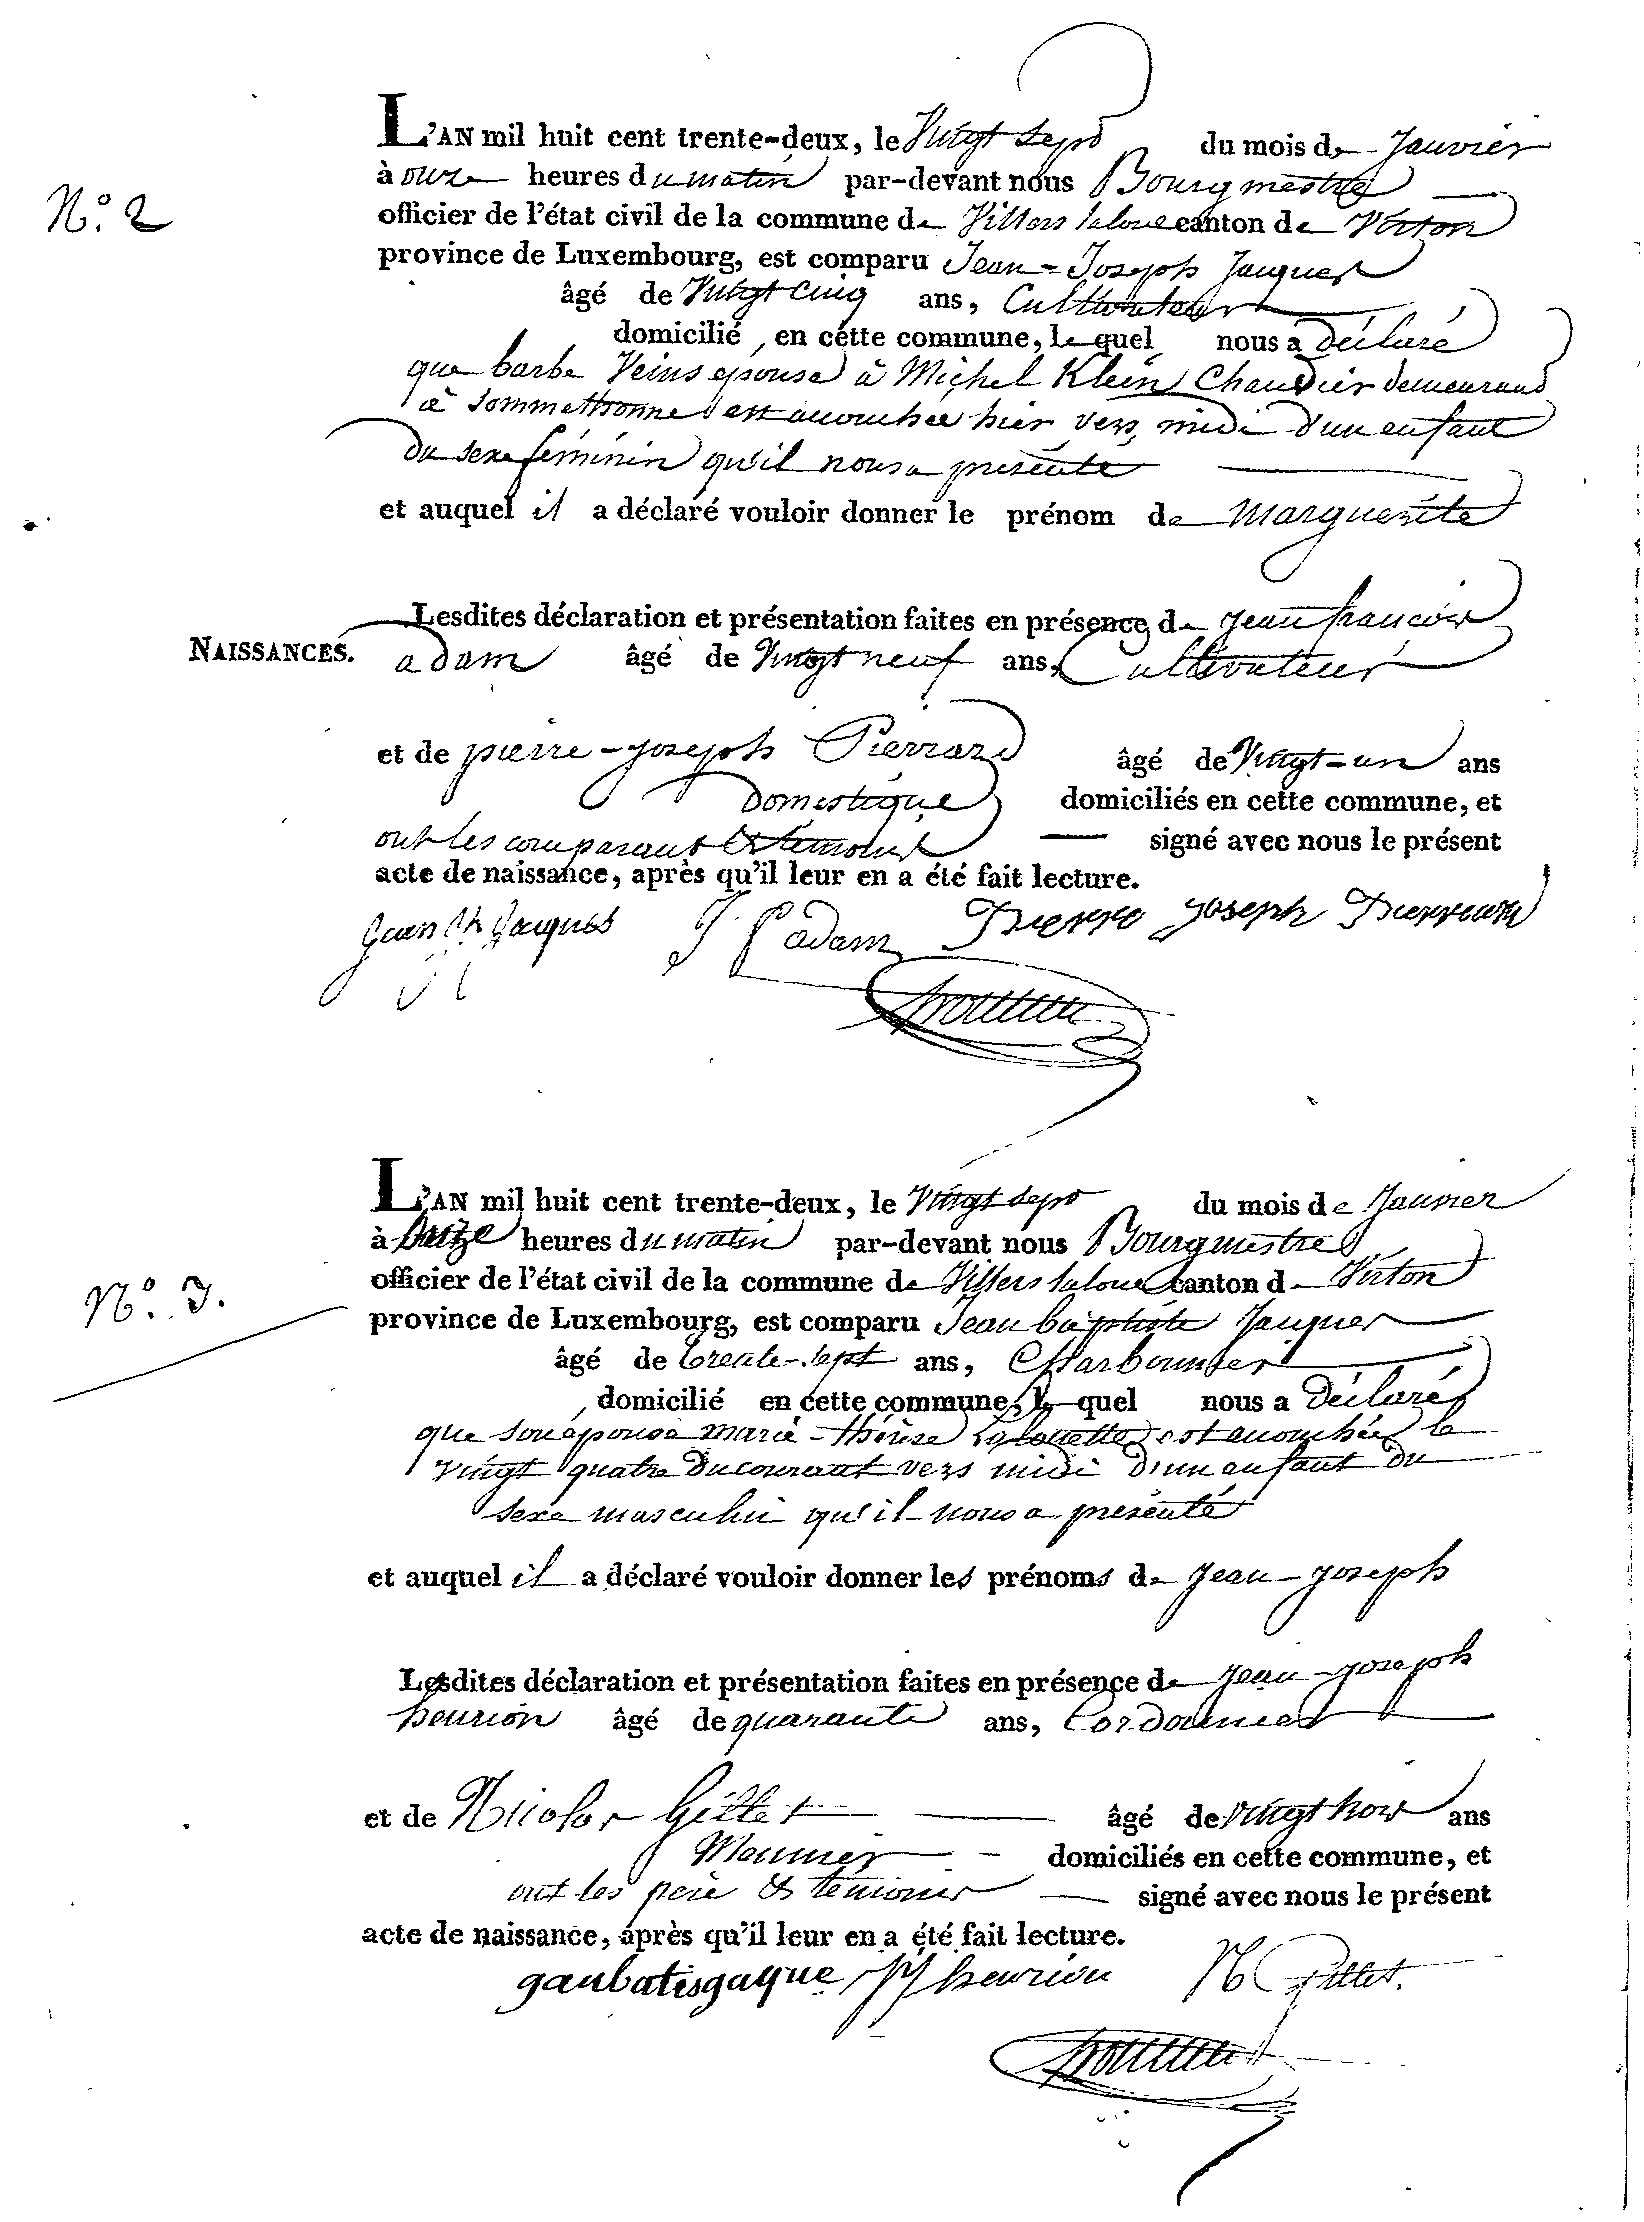 N.° 2
L'AN mil huit cent trente-deux, le Vingt Sept du mois de Janvier
à onze heures du matin par-devant nous Bourgmestre
officier de l'état civil de la commune de Villers laloue canton de Virton
province de Luxembourg, est comparu Jean-Joseph Jacques
âgé de Vingt Cinq ans, Cultivateur
domicilié, en cette commune, lequel nous a déclaré
que barbe Veins epouse à Michel Klein Chaudier demeurand
à Sommethonne est accouchée hier vers midi d'un enfant
du sexe féminin qu'il nous a présenté
et auquel il a déclaré vouloir donner le prénom de Marguerite
Lesdites déclaration et présentation faites en présence de Jean françois
NAISSANCES.
adam âgé de Vingt neuf ans, Cultivateur
et de pierre-joseph Pierrard âgé de Vingt-un ans
Domestique domiciliés en cette commune, et
ont les comparant & témoins signé avec nous le présent
acte de naissance, après qu'il leur en a été fait lecture.
Jean Jh Jacques J f adam Pierre Joseph Pierrard
L'AN mil huit cent trente-deux, le Vingt Sept du mois de Janvier
à heures du matin par-devant nous Bourgmestre
officier de l'état civil de la commune de Villers laloue canton d Virton
N.° 3.
province de Luxembourg, est comparu Jean baptiste Jacques
âgé de trente-sept ans, Charbonnier
domicilié en cette commune, lequel nous a déclaré
que son épouse marie-thérèse Lalouette est accouchée le
vingt quatre du courant vers midi d'un enfant du
sexe masculin qu'il nous a présenté
et auquel il a déclaré vouloir donner les prénoms de Jean-joseph
Lesdites déclaration et présentation faites en présence de Jean-joseph
henrion âgé de quarante ans, Cordonnier
et de Nicolas Gillet âgé de vingt trois ans
Meunier domiciliés en cette commune, et
ont les père & témoins signé avec nous le présent
acte de naissance, après qu'il leur en a été fait lecture.
ganbatisgaque JJ henrion N Gillet.